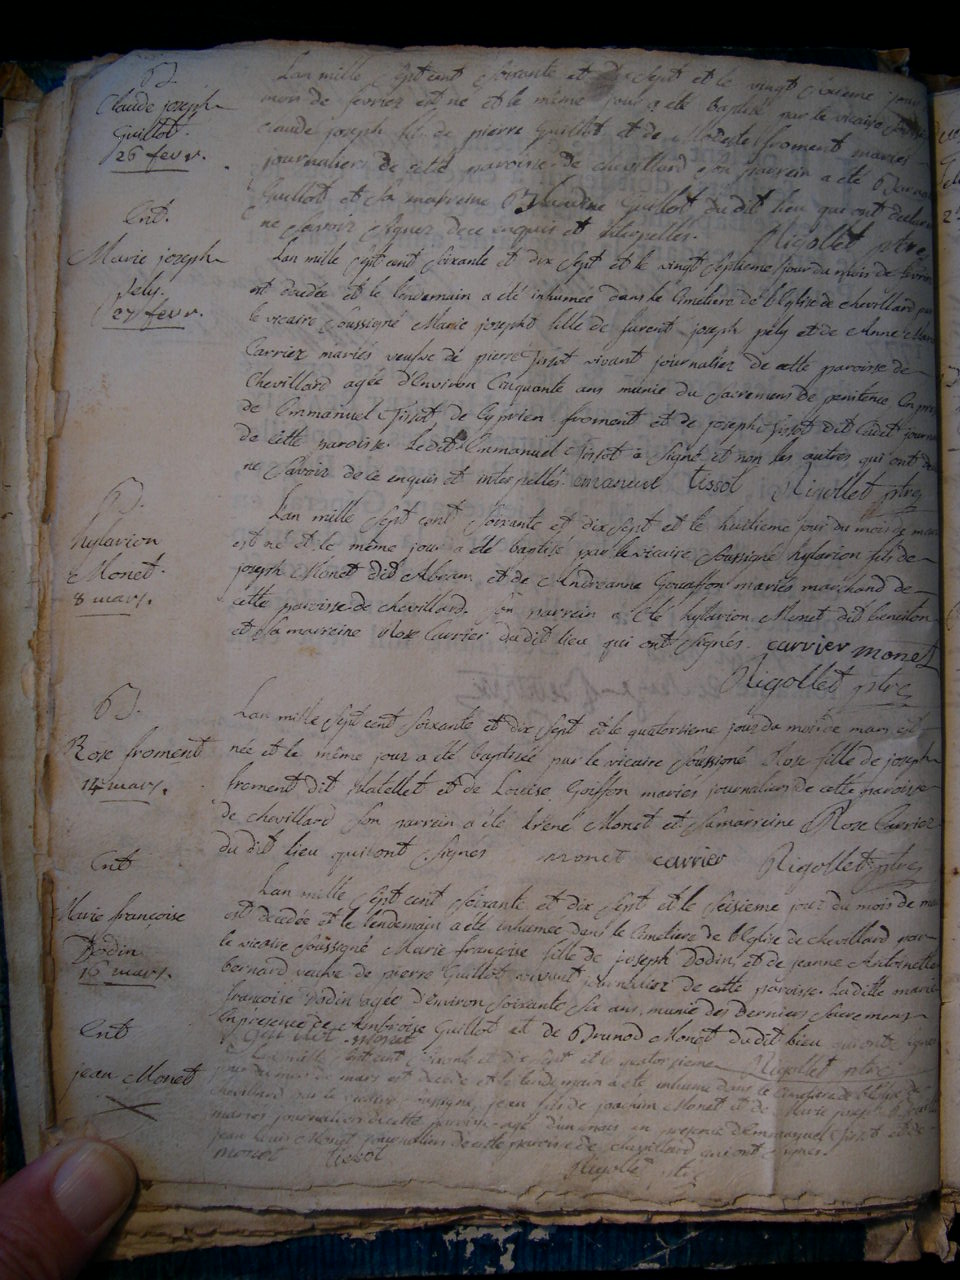 B.
Claude joseph
Guillot.
26 fevr.
Lan mille sept cent soixante et dix sept et le vingt sixieme jour
mois de fevrier est né et le même jour a été baptisé par le vicaire
Claude joseph fils de pierre Guillot et de Modeste froment mariés
journaliers de cette paroisse de chevillard son parrein a été
Guillot et sa marreine Claudine Guillot du dit lieu qui ont declaré
ne savoir signer de ce enquis et interpellés. Rigollet ptre
Ent.
Marie joseph
pely.
27 fevr.
Lan mille sept cent soixante et dix sept et le vingt septieme jour du mois de fevrier
est decedée et le lendemain a été inhumée dans le Cimetiere de l'Eglise de chevillard par
le vicaire soussigné Marie josepht fille de furent joseph pely et de Anne
Carrier mariés veufve de pierre Tissot vivant journalier de cette paroisse de
Chevillard agée d'environ Cinquante ans munie du sacremens de penitence En pre
de Emmanuel Tissot de Cyprien froment et de joseph Tissot dit Cadet journ
de cette paroisse. Ledit Emmanuel Tissot a signé et non les autres qui ont de
ne savoir de ce enquis et interpellés. emanuel tissot Rigollet ptre
B.
hylarion
Monet.
8 mars.
Lan mille sept cent soixante et dix sept et le huitieme jour du mois de mars
est né et le même jour a été baptisé par le vicaire soussigné hylarion fils de
joseph Monet dit Abram et de Andreanne Gouaffon mariés marchand de
cette paroisse de chevillard. Son parrein a été hylarion Monet dit
et sa marreine Rose Carrier du dit lieu qui ont signés. carrier monet
Rigollet ptre
B.
Rose froment
14 mars.
Lan mille sept cent soixante et dix sept et le quatorsieme jour du mois de mars est
née et le même jour a été baptisée par le vicaire soussigné Rose fille de joseph
froment dit et de Louise Goiffon mariés journaliers de cette paroisse
de chevillard son parrein a été Irené Monet et sa marreine Rose Carrier
du dit lieu qui ont signés monet carrier Rigollet ptre
Ent
Marie françoise
Bodin
16 mars.
Lan mille sept cent soixante et dix sept et le seisieme jour du mois de ma
est decedée et le lendemain a été inhumée dans le Cimetiere de l'Eglise de chevillard par
le vicaire soussigné Marie françoise fille de joseph Bodin et de jeanne Antoinette
bernard veuve de pierre Guillot vivant journalier de cette paroisse. Laditte marie
françoise Bodin agée d'environ soixante six ans, munie des Derniers sacremens
En presence de Ambroise Guillot et de Brunod Monet du dit lieu qui ont signés
monet
Rigollet ptre
Ent
jean Monet
Lan mille sept cent soixante et dix sept et le quatorsieme
jour du mois de mars est decedé et le lendemain a été inhumé dans le Cimetiere de l'Eglise de
chevillard par le vicaire soussigné jean fils de joachim Monet et de Marie joseph
mariés journaliers de cette paroisse agé d'un mois en presence d'Emmanuel Tissot et de
jean Louis Monet journaliers de cette paroisse de chevillard qui ont signés.
monet tissot
Rigollet ptre